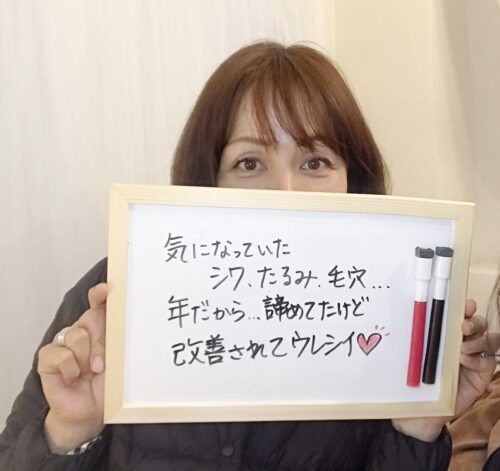 気になっていた
シワ、たるみ、毛穴...
年だから...諦めてたけど
改善されてウレシイ♡